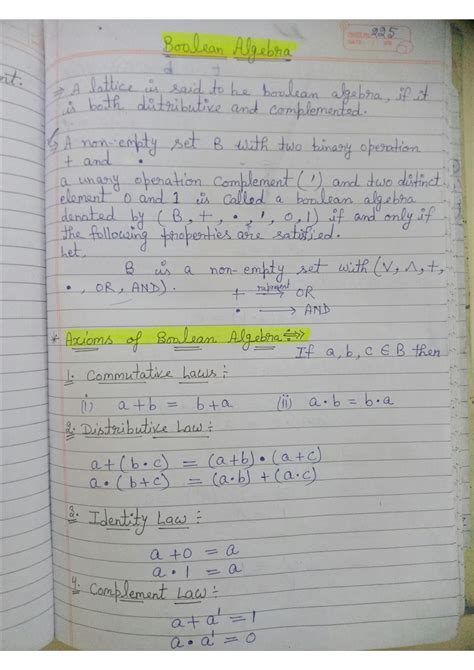 225
Boolean Algebra
nt.
→ A lattice is said to be boolean algebra, if it
is both distributive and complemented.
→ A non-empty set B with two binary operation
+ and •
a unary operation complement (') and two distinct
element 0 and 1 is called a boolean algebra
denoted by (B, +, •, ', 0, 1) if and only if
the following properties are satisfied.
Let,
B is a non-empty set with (V, Λ, +,
•, OR, AND).
+ represent → OR
• → AND
* Axioms of Boolean Algebra :⇒
If a, b, c ∈ B then
1. Commutative Laws :
(i) a+b = b+a (ii) a•b = b•a
2. Distributive Law :
a+(b•c) = (a+b)•(a+c)
a•(b+c) = (a•b)+(a•c)
3. Identity Law :
a+0 = a
a•1 = a
4. Complement Law :
a+a' = 1
a•a' = 0